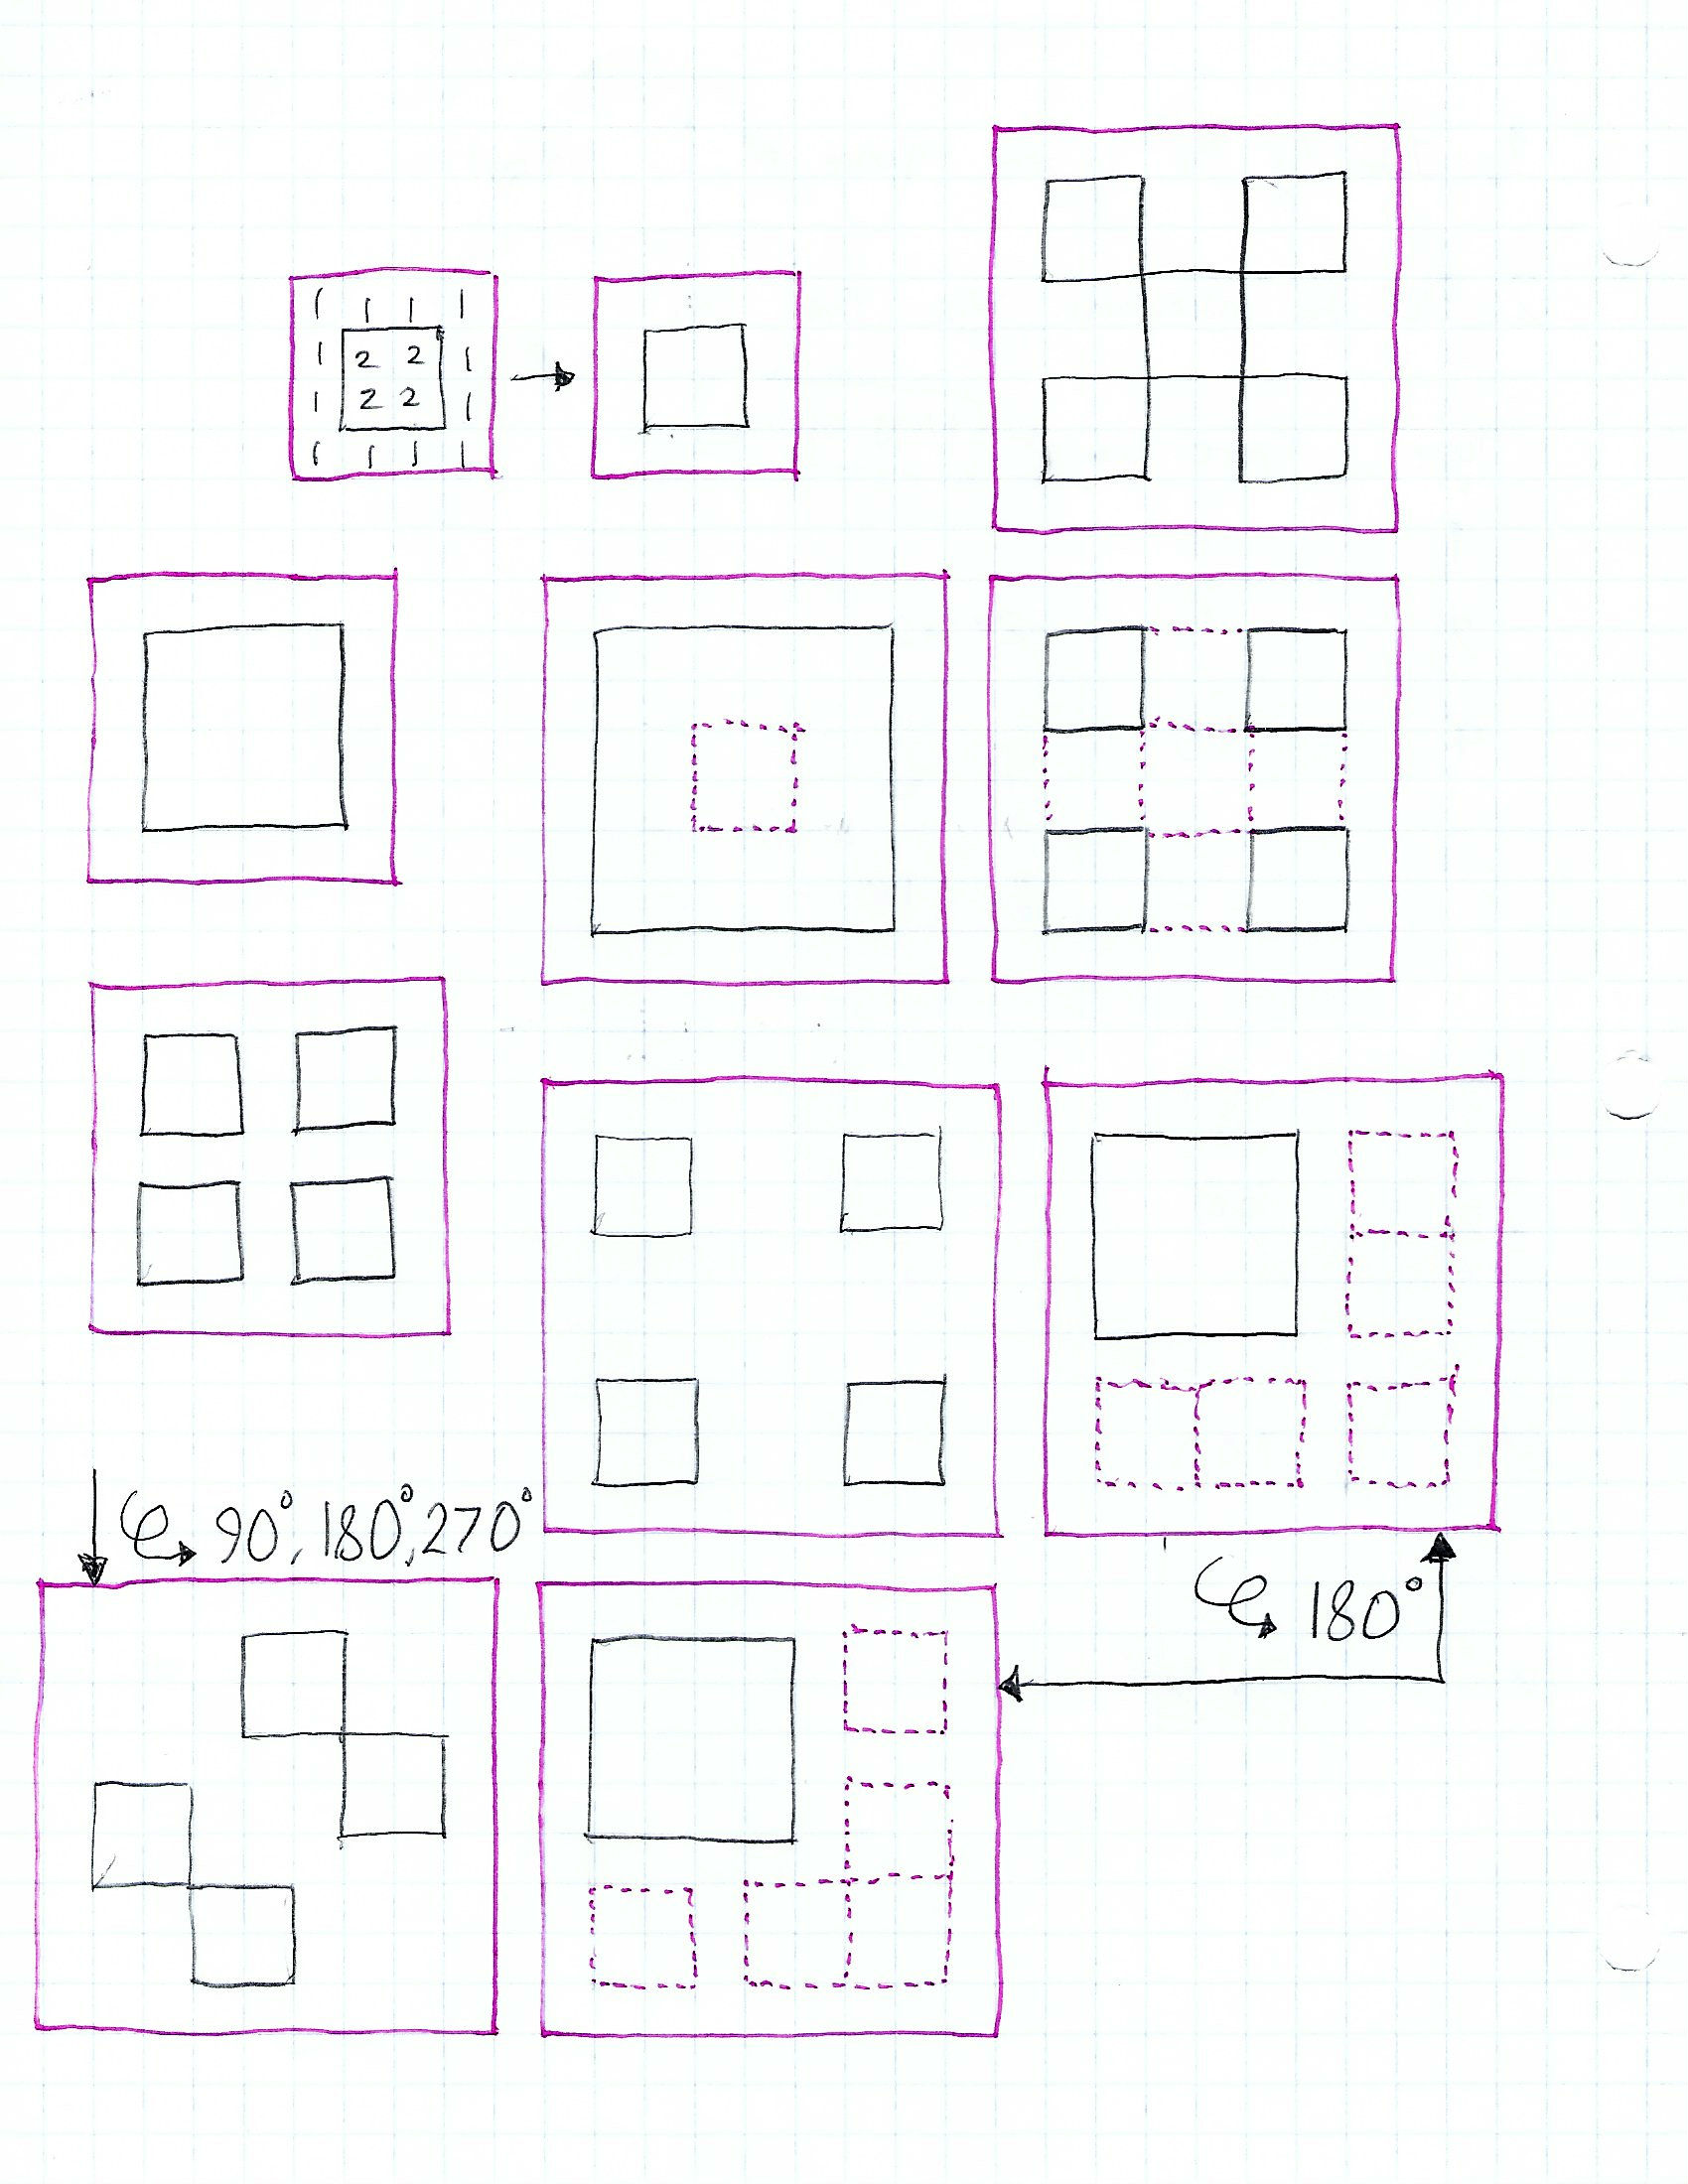 1 1 1 1
1 2 2 1
1 2 2 1
1 1 1 1
90°, 180°, 270°
180°